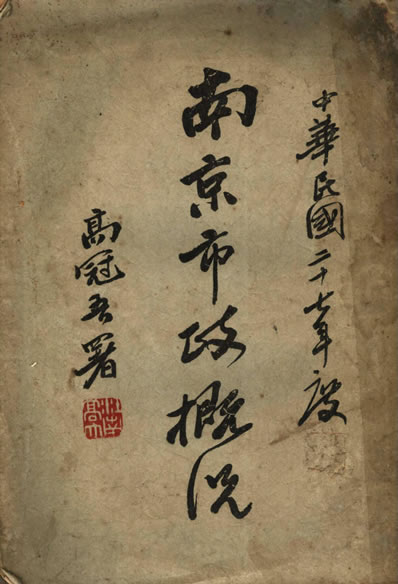 中華民國二十七年度
南京市政概況
高冠吾署